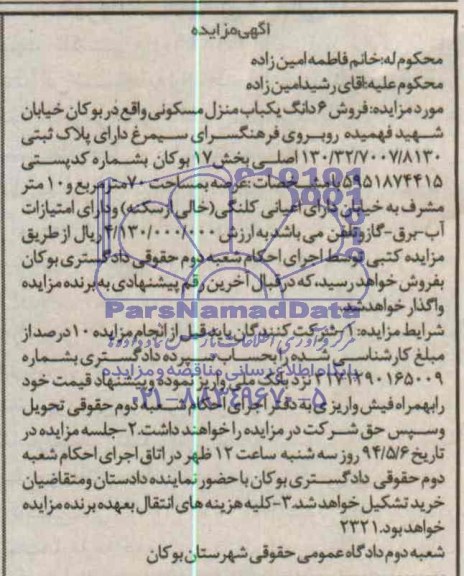 آگهی مزایده
محکوم له: خانم فاطمه امین زاده
محکوم علیه: آقای رشید امین زاده
مورد مزایده: فروش ۶ دانگ یکباب منزل مسکونی واقع در بوکان خیابان
شهید فهمیده روبروی فرهنگسرای سیمرغ دارای پلاک ثبتی
۱۳۰/۳۲/۷۰۰۷/۸۱۳۰ اصلی بخش ۱۷ بوکان بشماره کدپستی
۵۹۵۱۸۷۴۴۱۵ با مشخصات: عرصه بمساحت ۷۰ مترمربع و ۱۰ متر
مشرف به خیابان دارای اعیانی کلنگی (خالی از سکنه) و دارای امتیازات
آب-برق-گاز و تلفن می باشد به ارزش ۴/۱۳۰/۰۰۰/۰۰۰ ریال از طریق
مزایده کتبی توسط اجرای احکام شعبه دوم حقوقی دادگستری بوکان
بفروش خواهد رسید، که در قبال آخرین رقم پیشنهادی به برنده مزایده
واگذار خواهد شد.
ParsNamadData
شرایط مزایده: ۱-شرکت کنندگان باید قبل از انجام مزایده ۱۰ درصد از
مبلغ کارشناسی شده را بحساب سپرده دادگستری بشماره
پایگاه اطلاع رسانی مناقصه و مزایده
نزد بانک ملی واریز نموده و پیشنهاد قیمت خود
۰۲۱-۸۸۳۴۹۶۷۰-۵
را بهمراه فیش واریزی به دفتر اجرای احکام شعبه دوم حقوقی تحویل
و سپس حق شرکت در مزایده را خواهند داشت. ۲-جلسه مزایده در
تاریخ ۹۴/۵/۶ روز سه شنبه ساعت ۱۲ ظهر در اتاق اجرای احکام شعبه
دوم حقوقی دادگستری بوکان با حضور نماینده دادستان و متقاضیان
خرید تشکیل خواهد شد. ۳-کلیه هزینه های انتقال بعهده برنده مزایده
خواهد بود. ۲۳۲۱
شعبه دوم دادگاه عمومی حقوقی شهرستان بوکان